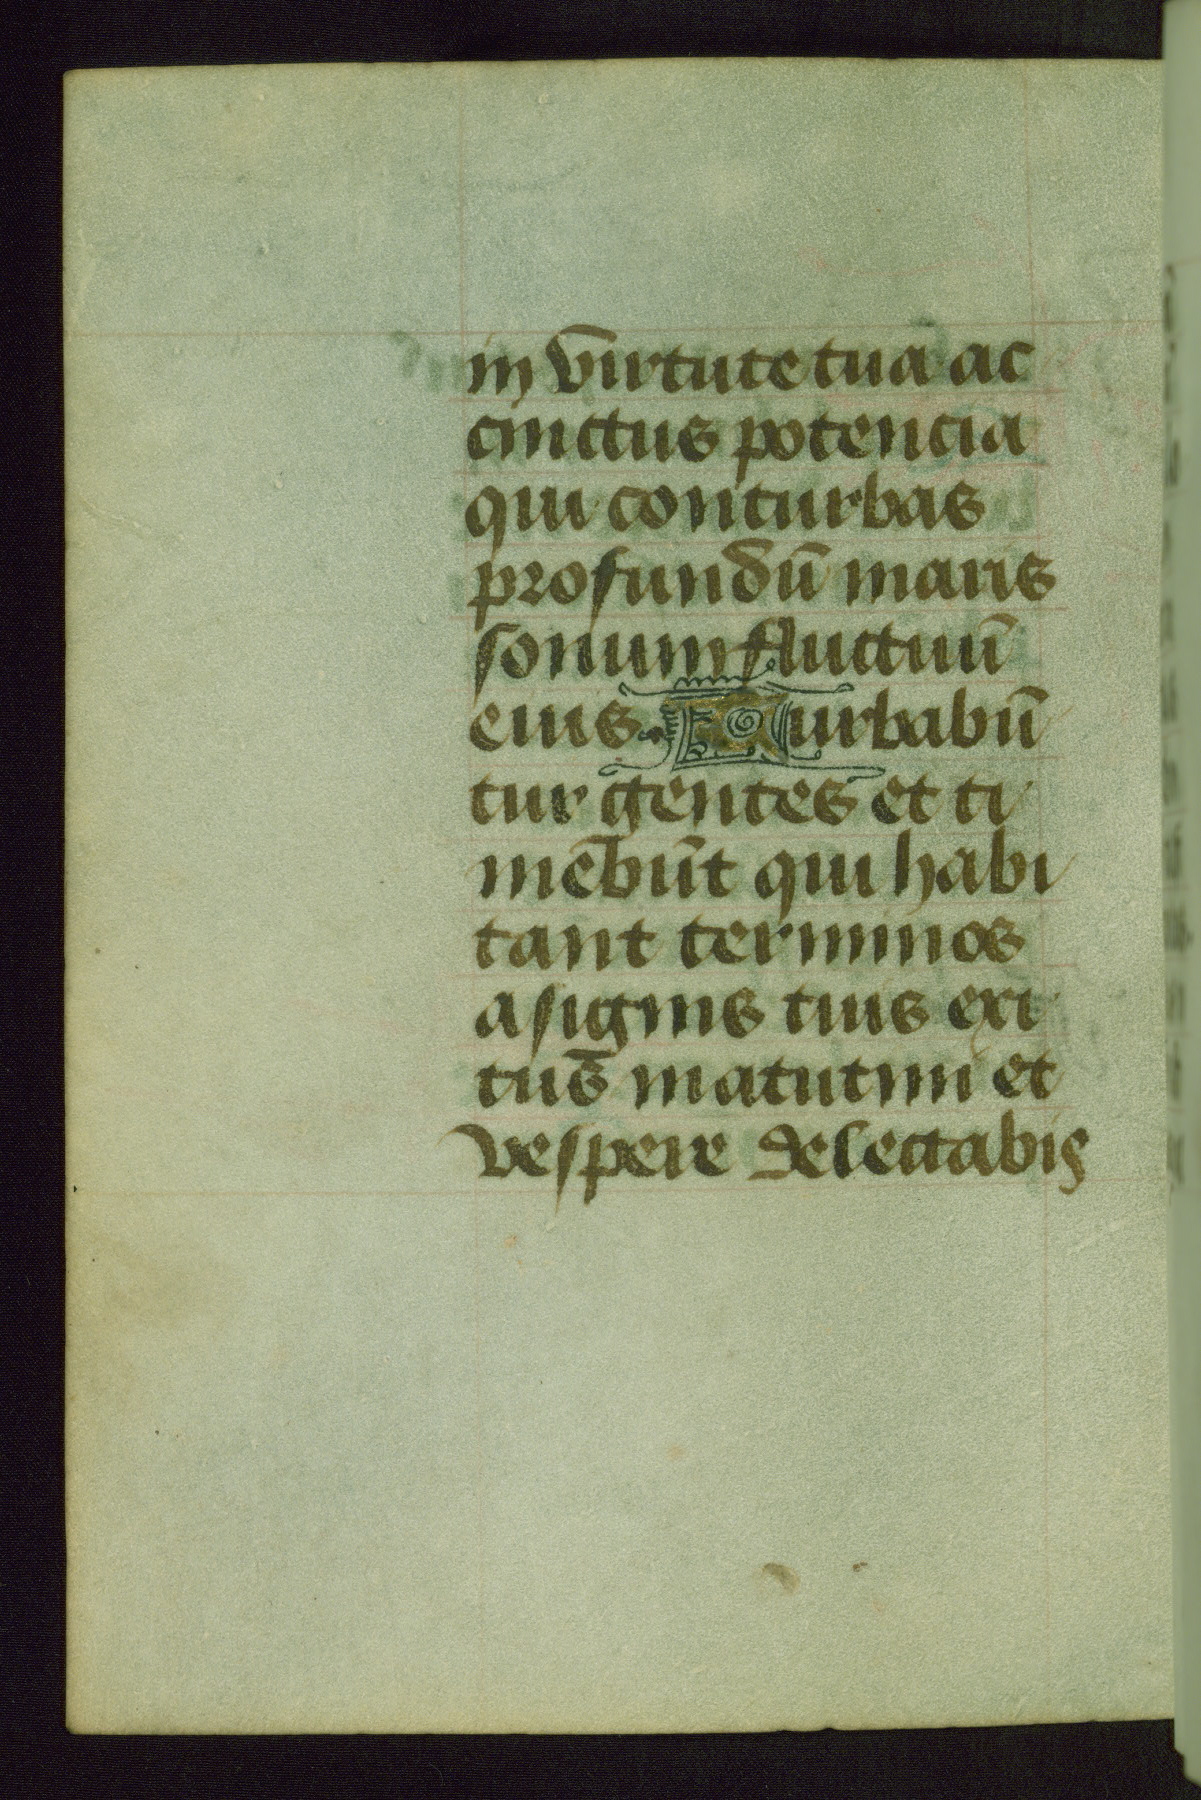 in virtute tua ac
cinctus potencia
qui conturbas
profundū maris
sonum fluctuū
eius. Turbabū
tur gentes et ti
mēbūt qui habi
tant terminos
a signis tuis exi
tus̄ matutini et
vespere delectabis